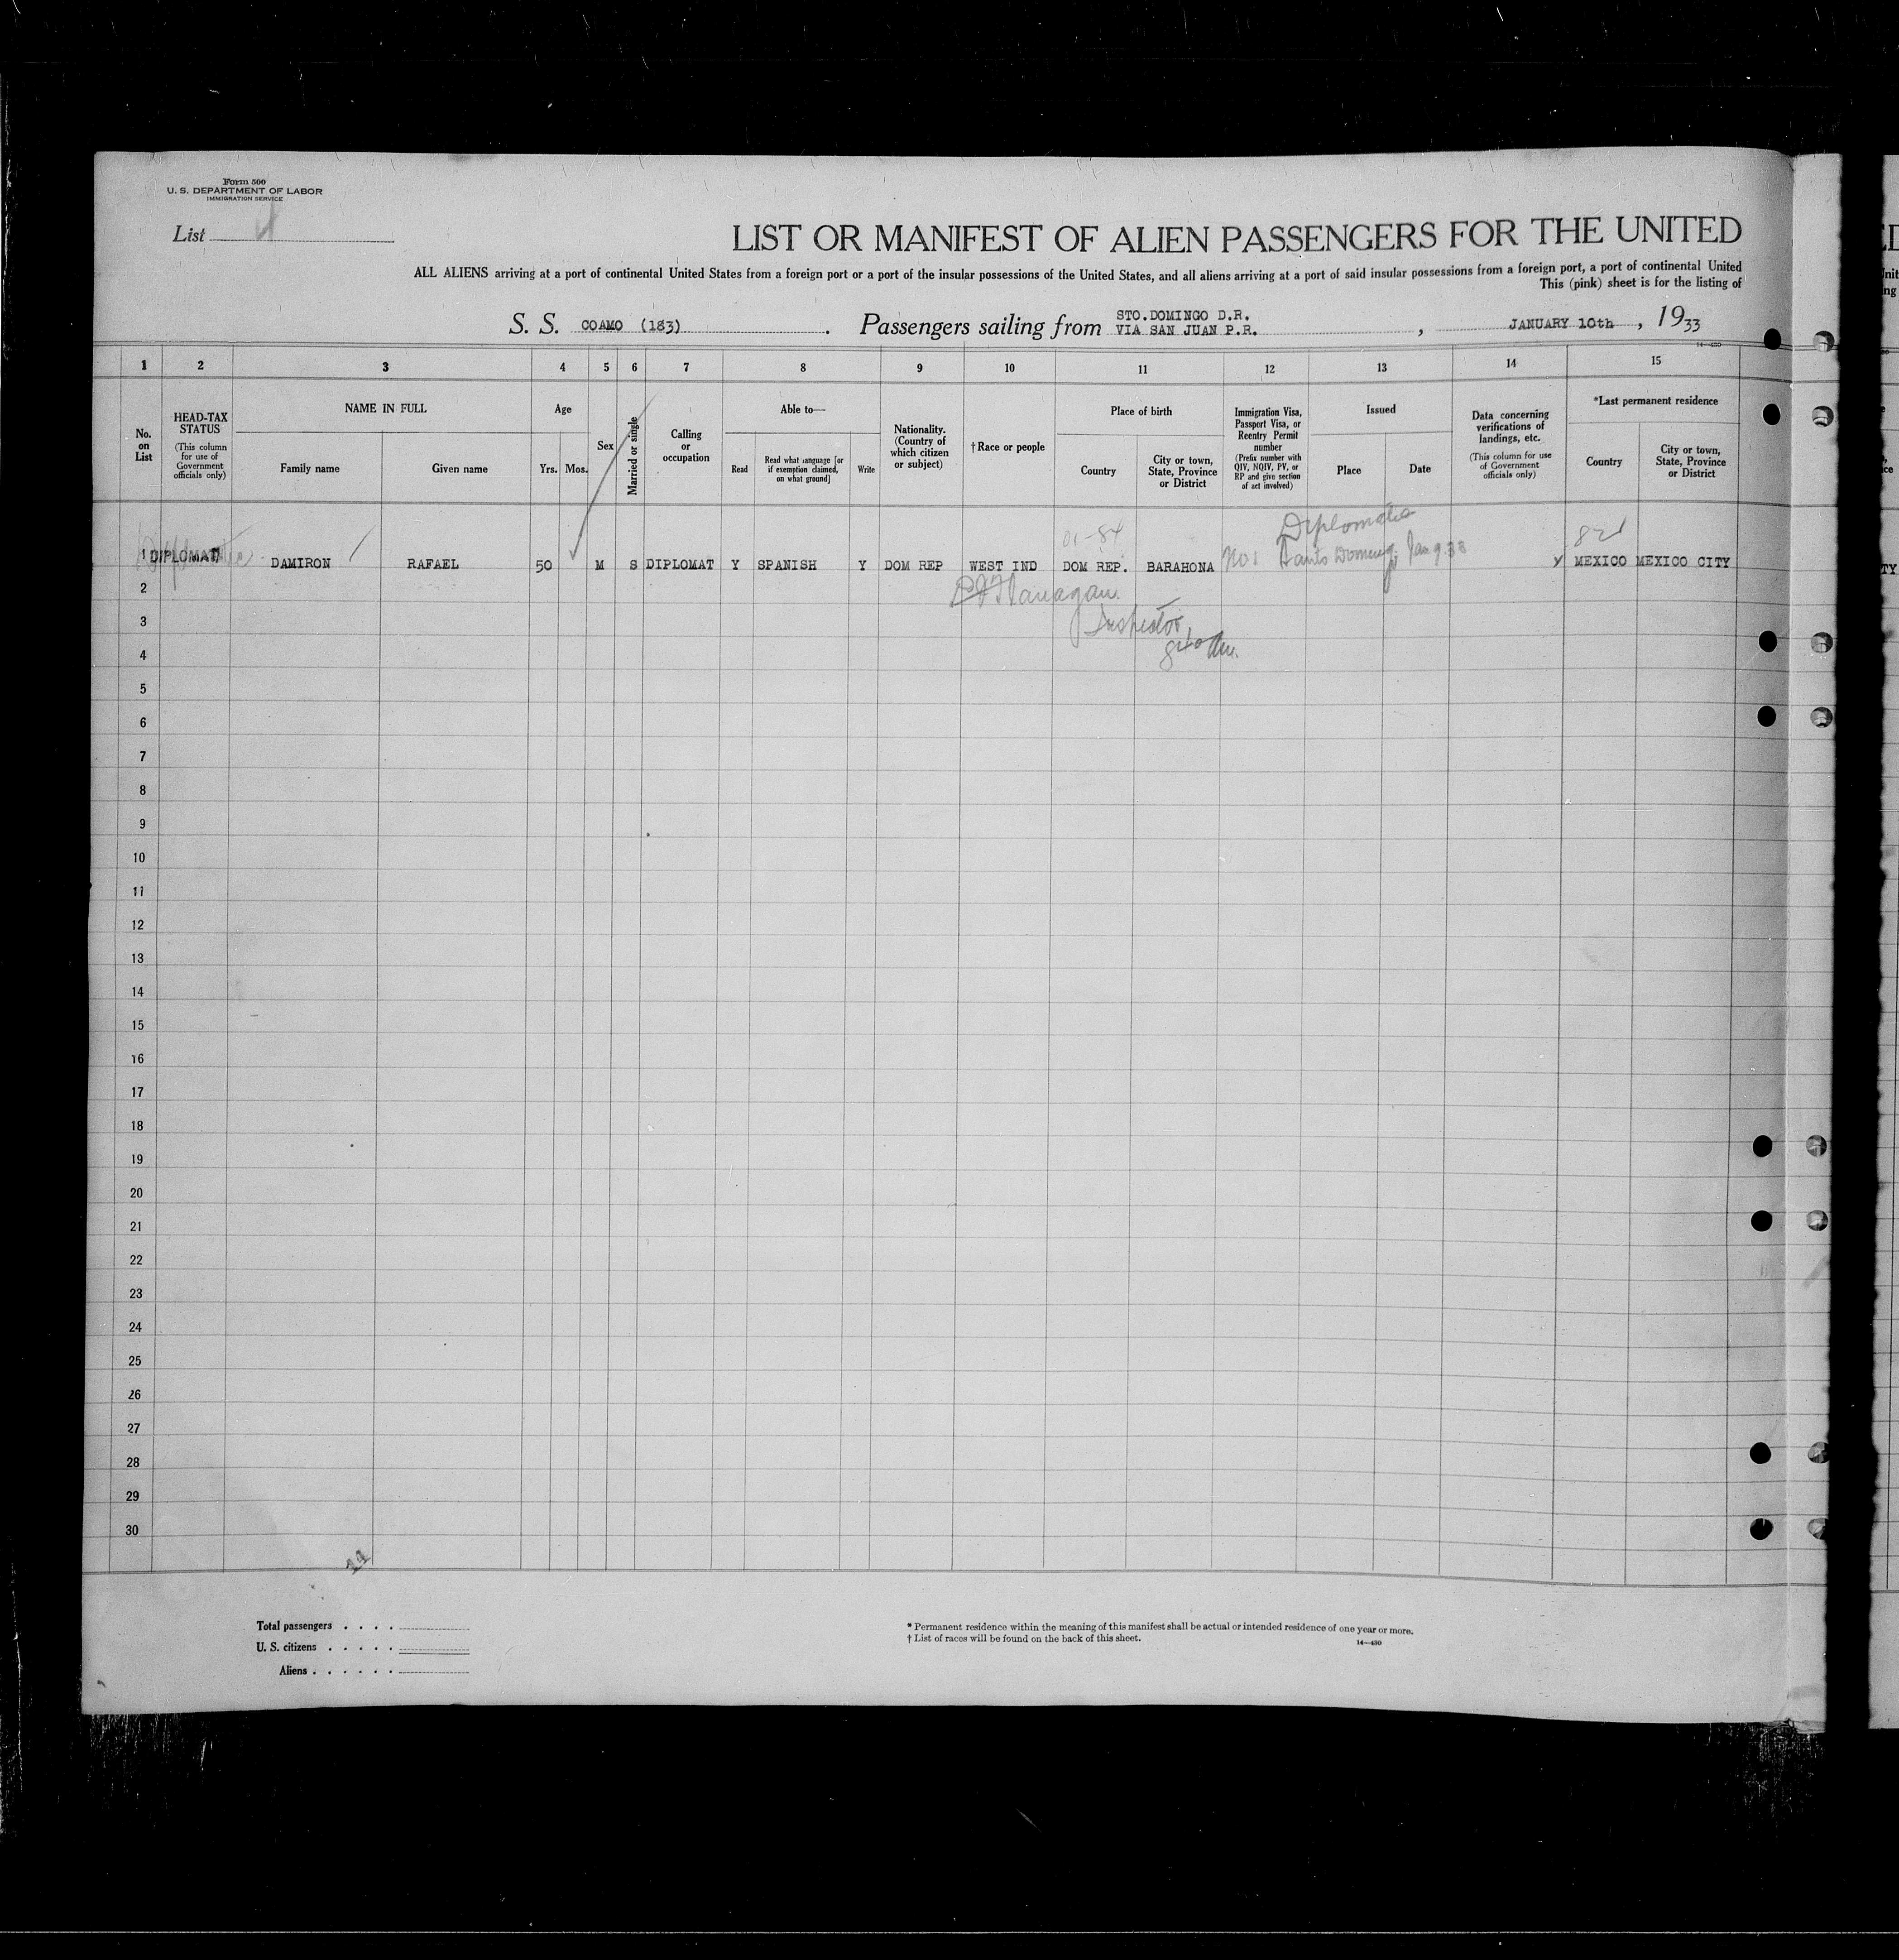 Form 500
U. S. DEPARTMENT OF LABOR
IMMIGRATION SERVICE
List
LIST OR MANIFEST OF ALIEN PASSENGERS FOR THE UNITED
ALL ALIENS arriving at a port of continental United States from a foreign port or a port of the insular possessions of the United States, and all aliens arriving at a port of said insular possessions from a foreign port, a port of continental United
This (pink) sheet is for the listing of
S. S. COAMO (183). Passengers sailing from STO.DOMINGO D.R. VIA SAN JUAN P.R., JANUARY 10th, 1933
14—430
1 2 3 4 5 6 7 8 9 10 11 12 13 14 15
No. on List
HEAD-TAX STATUS
(This column for use of Government officials only)
NAME IN FULL
Family name
Given name
Age
Yrs. Mos.
Sex
Married or single
Calling or occupation
Able to—
Read
Read what language [or if exemption claimed, on what ground]
Write
Nationality. (Country of which citizen or subject)
†Race or people
Place of birth
Country
City or town, State, Province or District
Immigration Visa, Passport Visa, or Reentry Permit number
(Prefix number with QIV, NQIV, PV, or RP and give section of act involved)
Issued
Place
Date
Data concerning verifications of landings, etc.
(This column for use of Government officials only)
*Last permanent residence
Country
City or town, State, Province or District
Diplomatic
1 DIPLOMAT DAMIRON RAFAEL 50 M S DIPLOMAT Y SPANISH Y DOM REP WEST IND DOM REP. BARAHONA No 1 Santo Domingo Jan 9 33 MEXICO MEXICO CITY
2 Flanagan
3 Inspector
4
5
6
7
8
9
10
11
12
13
14
15
16
17
18
19
20
21
22
23
24
25
26
27
28
29
30
Total passengers
U. S. citizens
Aliens
* Permanent residence within the meaning of this manifest shall be actual or intended residence of one year or more.
† List of races will be found on the back of this sheet.
14—430